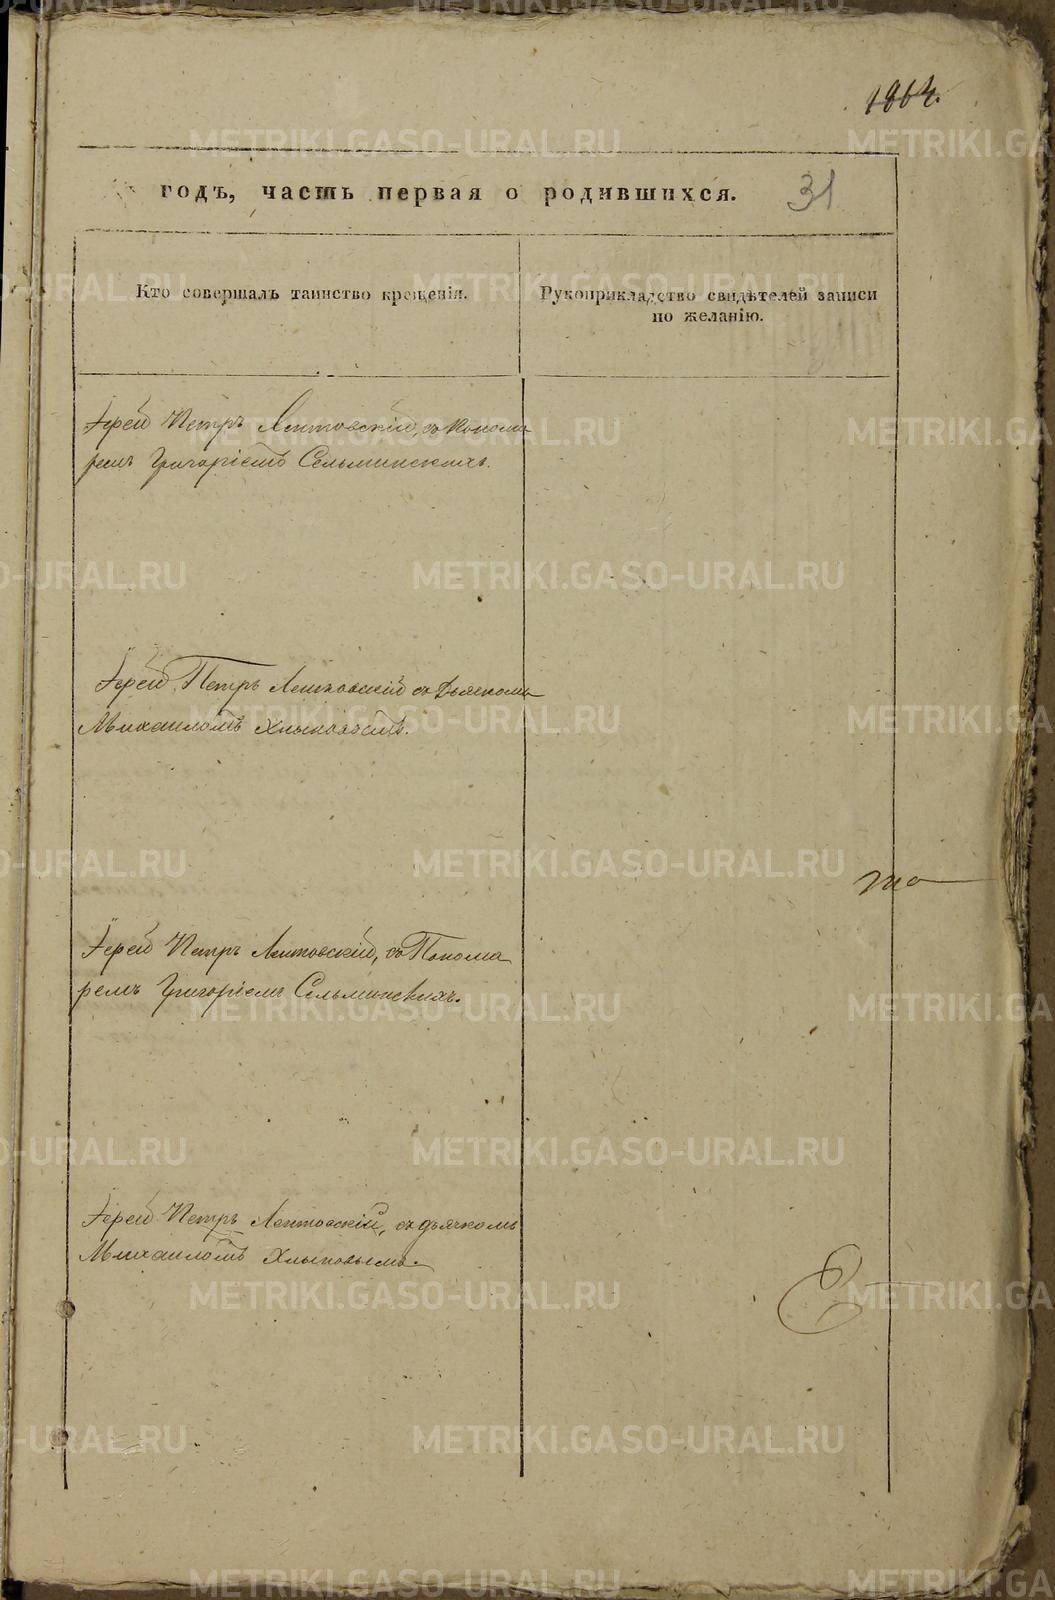 1864.
годъ, часть первая о родившихся. 31
Кто совершалъ таинство крещенія.
Рукоприкладство свидѣтелей записи
по желанію.
Іерей Петръ Лептовскій, съ Понома
ремъ Григоріемъ Сельминскихъ.
Іерей Петръ Лептовскій съ Дьячкомъ
Михаиломъ Хлыновымъ.
Іерей Петръ Лептовскій, съ Понома
ремъ Григоріемъ Сельминскихъ.
Іерей Петръ Лептовскій, съ дьячкомъ
Михаиломъ Хлыновымъ.
METRIKI.GASO-URAL.RU